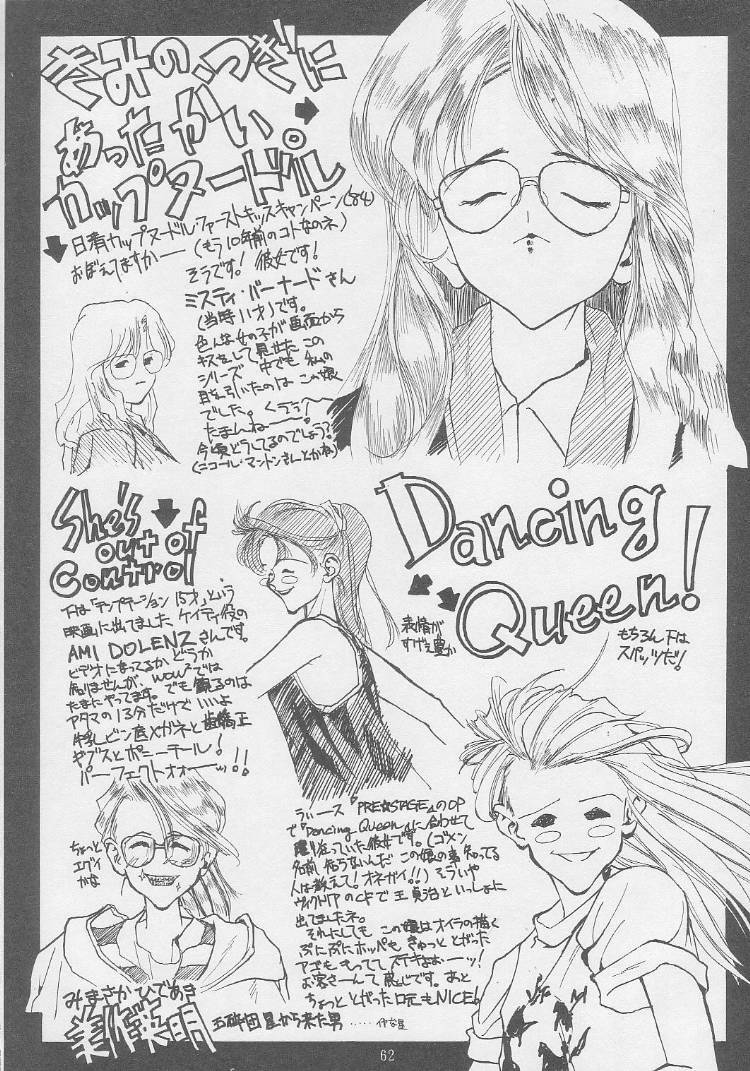 きみの、つぎに
あったかい。
カップヌードル
日清カップヌードルファーストキッスキャンペーン('84)
おぼえてますかー (もう10年前のコトなのネ)
そうです! 彼女です!
ミスティ・バーナードさん
(当時11才)です。
色んな女の子が画面から
キスをして見せたこの
シリーズ中でも私の
目を引いたのはこの娘
でした。くうぅ〜
たまんねー
今頃どうしてるのでしょう?
(ニコール・マンドンさんとかね)
She's
out of
Control
下は「テンプテーション15才」という
映画に出てましたケイティ役の
AMI DOLENZさんです。
ビデオになってるかどうか
知りませんが、WOW²では
たまにやってます。でも観るのは
アタマの13分だけでいいよ
牛乳ビン底メガネと歯矯正
ヤブスとポニーテール!
パーフェクトォォーッ!!
ちょっと
エグイ
かな
Dancing
Queen!
表情が
すげぇ豊か
もちろん下は
スパッツだ!
うぃース『PRE☆STAGE』のOP
で『Dancing Queen』に合わせて
踊り狂っていた彼女です。(ゴメン
名前知らないんだ この娘の事知ってる
人は教えて!オネガイ!!)そういや
ヴィクトリアのCFで王貞治といっしょに
出てましたネ。
それにしてもこの娘はオイラの描く
ぷにぷにホッペもきゅっととがった
アゴももっててステキよぉーッ!
お客さーんて感じです。あと
ちょっととがった口元もNICE!
みまさかひであき
美作英明
五反田星から来た男
62